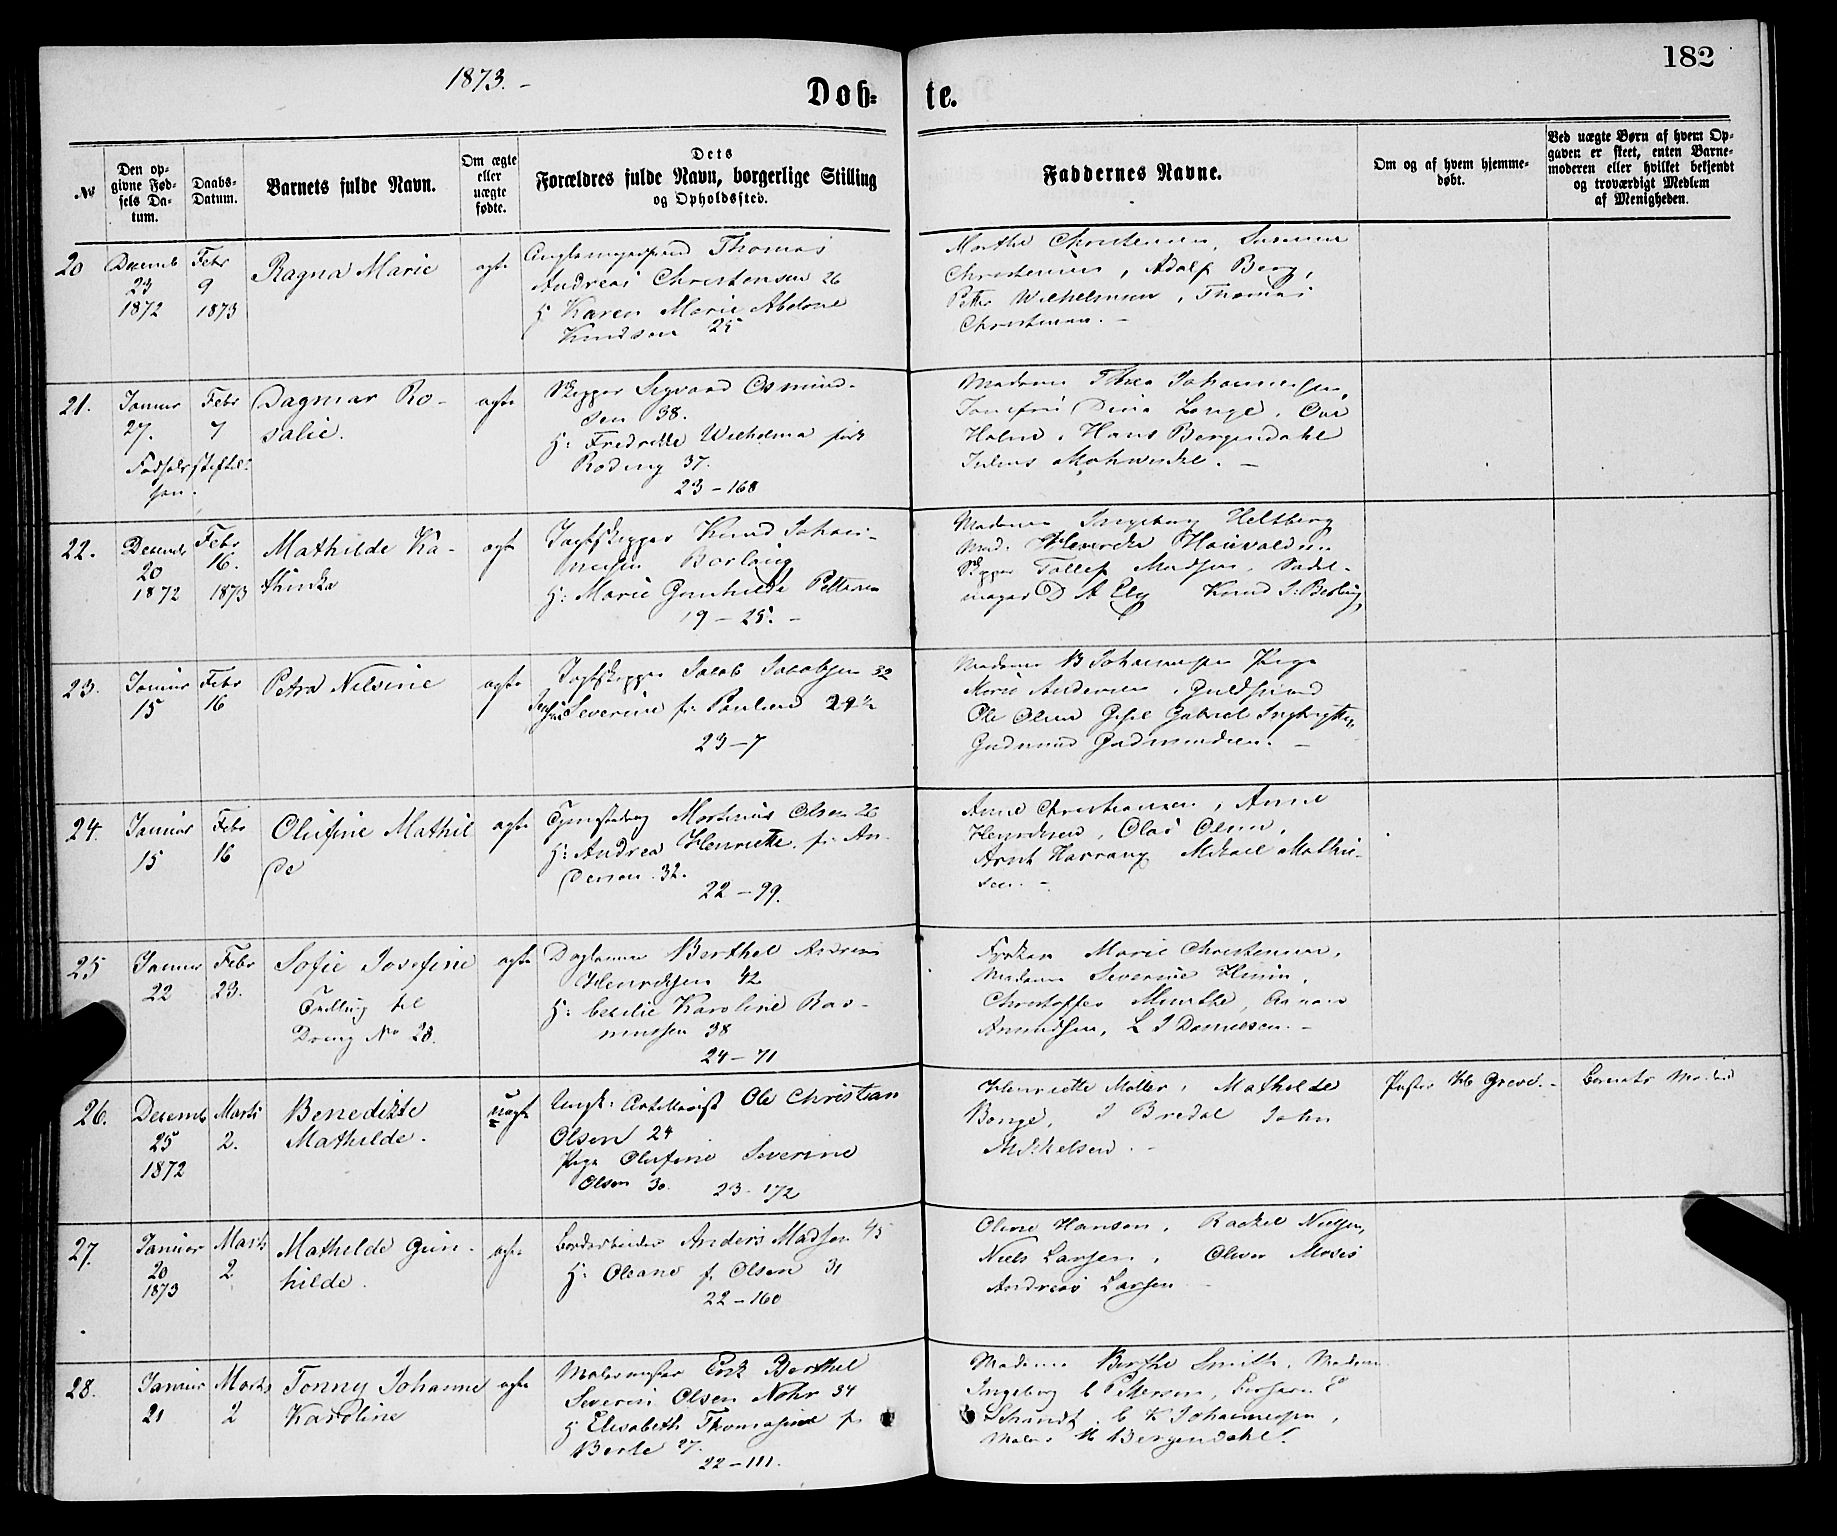 1873.-
182
Døb= te.
No
Den op-
givne Fød-
sels Da-
tum.
Daabs-
Datum.
Barnets fulde Navn.
Om ægte
eller
uægte
fødte.
Dets
Forældres fulde Navn, borgerlige Stilling
og Opholdssted.
Faddernes Navne.
Om og af hvem hjemme-
døbt.
Ved uægte Børn af hvem Op-
gaven er skeet, enten Barne-
moderen eller hvilket bekjendt
og troværdigt Medlem
af Menigheden.
20
Decemb
23
1872
Febr
9
1873
Ragna Marie
ægte
Thomas
Andreas Christensen 26
H Karen Marie Abelone
Knudsen 25
Marthe Christensen,
Christensen, Adolf Berg,
Petter Wilhelmsen, Thomas
Christensen.-
21.
Januar
27.
Fødselsstiftel-
sen.
Febr
7
Dagmar Ro-
salie.
ægte
Skipper Sigvard Osmund-
sen 38.
H: Fredrikke Wilhelma født
Roding 37.
23-168
Madame Thea Johannessen,
Jomfru Dina Lange,
Holm, Hans Bergendahl
Julius Mohwinkel.-
22.
Decemb
20
1872
Febr
16.
1873
Mathilde Ka-
thinka
ægte
Jagtskipper Knud Johan-
nesen Borlaug
H: Marie Gunhilde Pettersen
19-25.-
Madame Ingeborg Heltberg
Mad.
Skipper Tollef Madsen, Sadel-
mager D A Ely Knud J: Borlaug
23.
Januar
15
Febr
16
Petra Nilsine
ægte
Jagtskipper Jacob Jacobsen 32
Severine f: Paulsen 29½
23-7
Madame B Johannessen Pige
Marie Andersen, Guldsmed
Ole Olsen Gabriel
Gudmund Gudmundsen.-
24.
Januar
15
Febr
16
Olufine Mathil
de
ægte
Mortinus Olsen 26
H: Andrea Henriette f: An-
dersen 32.
22-99.
Anne Christiansen, Anne
Henriksen, Olai Olsen,
Arnt Harrang Mikael Mathie-
sen.-
25
Januar
22
Febr
23.
Sofie Josefine
Tvilling til
Dreng No 28.
ægte
Daglønner Berthel Andreas
Henriksen 42
H: Cecilie Karoline Ras-
mussen 38
24-71
Marie Christensen,
Madame Severine
Christoffer Munthe,
Amundsen, L J Danielsen.-
26.
Decemb
25
1872
Marts
2.
Benedikte
Mathilde.
uægte
Ungk: Artillerist Ole Christian
Olsen 24
Pige Olufine Severine
Olsen 30. 23-172
Henriette Møller, Mathilde
Bonge, J Bredal John
Mikkelsen.-
Pastor Greve.-
Barnets Moder
27.
Januar
20
1873
Marts
2
Mathilde Gun-
hilde.
ægte
Bordarbeider Anders Madsen 45
H: Oleane f. Olsen 31
22-160
Oline Hansen, Rachel Nielsen,
Niels Larsen, Oliver Moses
Andreas Larsen
28.
Januar
21
Marts
2
Tonny Johanne
Karoline
ægte
Malermester Erik Berthel
Severin Olsen Nohr 34
H Elisabeth Thomasine f
Berle 27.
22-111.
Madame Berthe Smith, Madam
Ingeborg C Pettersen,
Strandt, C K Johannessen,
Maler H Bergendahl.